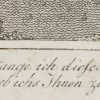 ange ich diese
b ichs Ihnen z